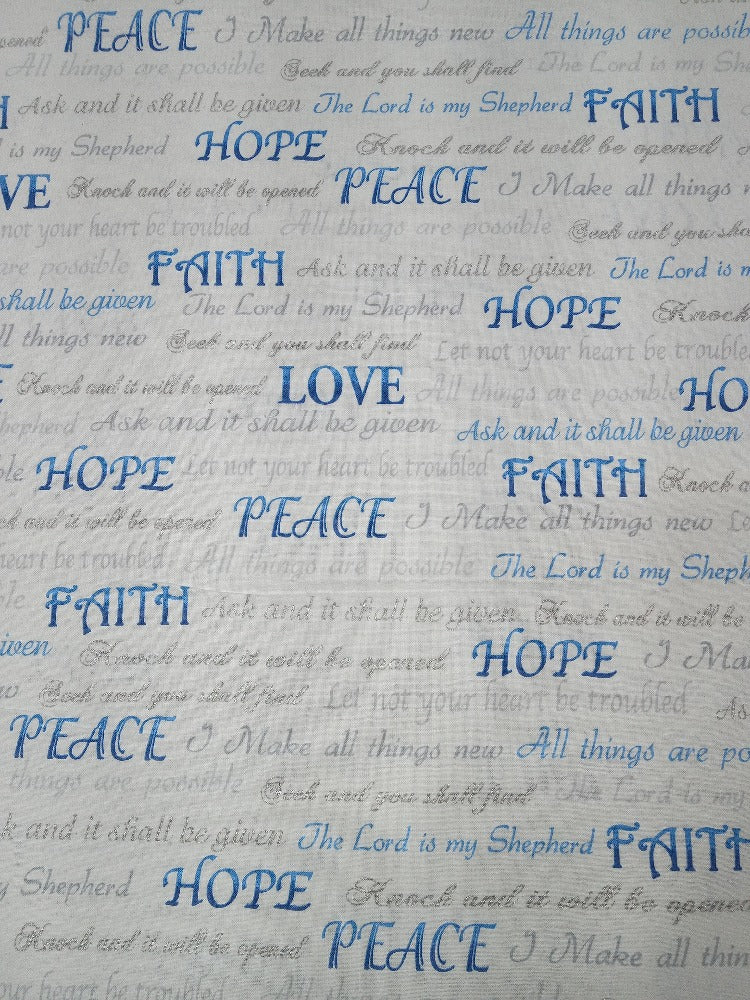 PEACE I Make all things new All things are possib
All things are possible Seek and you shall find The Lord is my
H Ask and it shall be given The Lord is my Shepherd FAITH
is my Shepherd HOPE Knock and it will be opened
VE Knock and it will be opened PEACE I Make all things
not your heart be troubled All things are possible Seek and you sha
are possible FAITH Ask and it shall be given The Lord is m
shall be given The Lord is my Shepherd HOPE Knock
ll things new Seek and you shall find Let not your heart be trouble
E Knock and it will be opened LOVE All things are possible HO
hepherd Ask and it shall be given Ask and it shall be given
ble HOPE Let not your heart be troubled FAITH Knock a
ck and it will be opened PEACE I Make all things new
heart be troubled All things are possible The Lord is my Sheph
ble FAITH Ask and it shall be given Knock and it will be
iven Knock and it will be opened HOPE I Ma
w Seek and you shall find Let not your heart be troubled As
PEACE I Make all things new All things are po
things are possible Seek and you shall find The Lord is my
k and it shall be given The Lord is my Shepherd FAITH
y Shepherd HOPE Knock and it will be opened
Knock and it will be opened PEACE I Make all thin
ur heart be troubled All things are possible